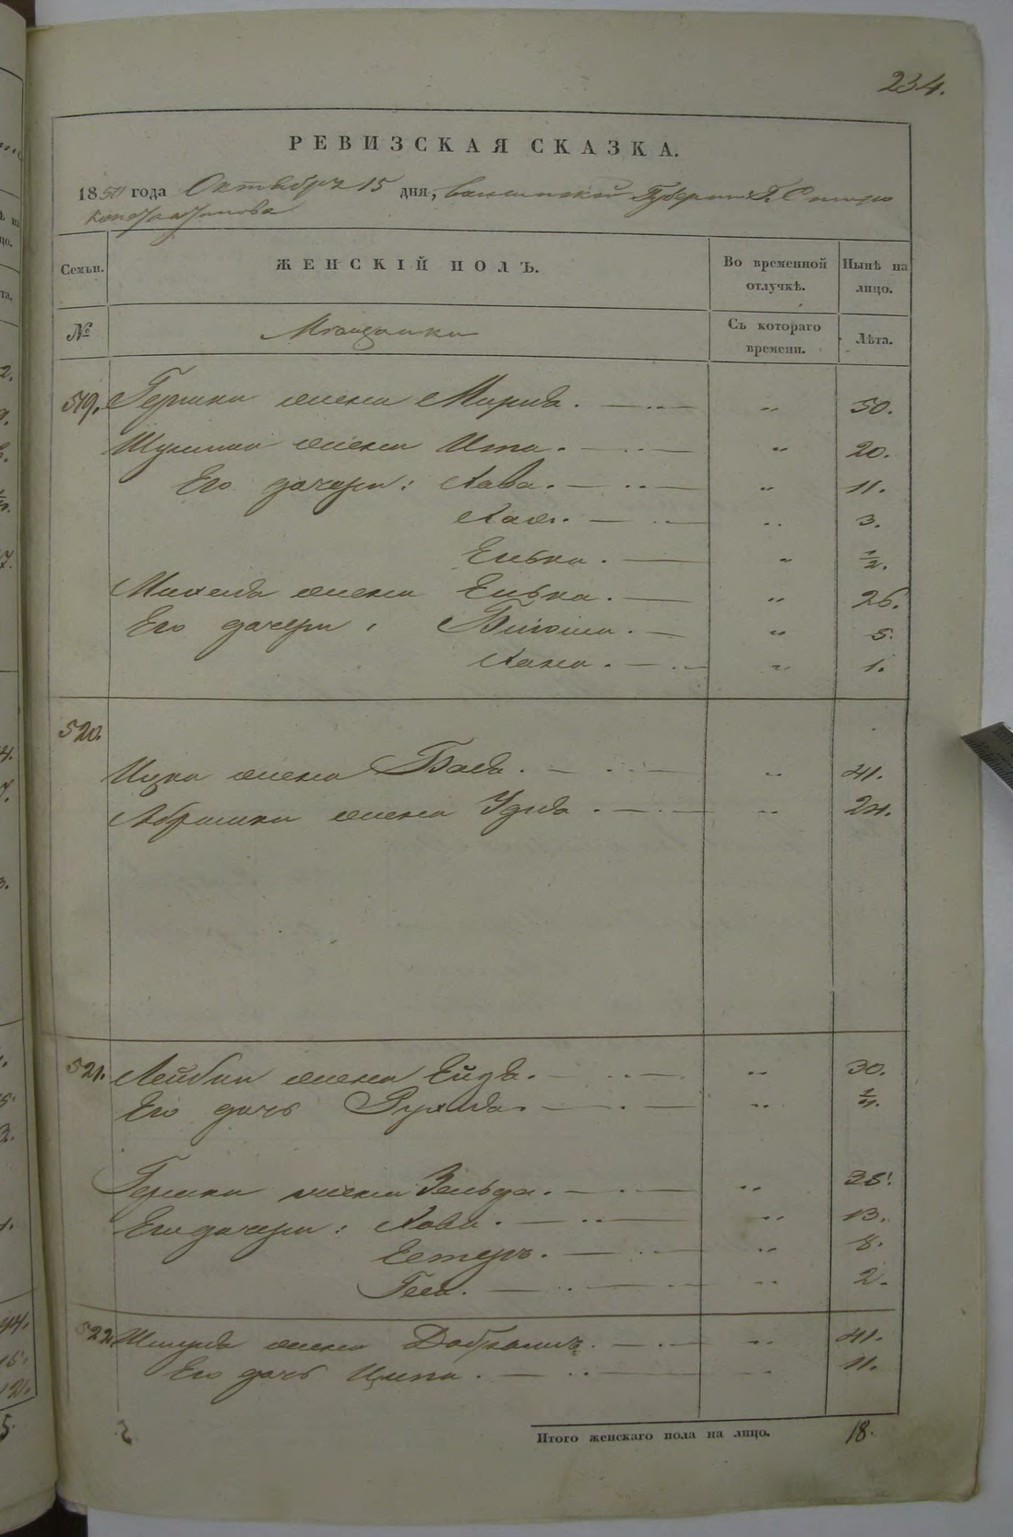 234.
РЕВИЗСКАЯ СКАЗКА.
1850 года Октября 15 дня, Волынской Губернии Г. Старо
константинова
Семьи. ЖЕНСКІЙ ПОЛЪ. Во временной отлучкѣ. Нынѣ на лицо.
№ Мѣщанки Съ котораго времени. Лѣта.
519. Гершки жена Мирля. — „ 50.
жена Ита. — „ 20.
Его дочери: Хава. — „ 11.
Хая. — „ 3.
Елька. — „ 1/2.
Михеля жена Елька. — „ 26.
Его дочери: — „ 5.
Хана. — „ 1.
520.
Ицка жена Бася. — „ 41.
Абрамка жена — „ 24.
521. Лейбы жена Ейдля. — „ 30.
Его дочь Рухля. — „
Гершки жена Зельда. — „ 35.
Его дочери: Хова. — „ 13.
Естеръ. — „ 8.
Геся. — „ 2.
522. жена — „ 41.
Его дочь Ципа. — „ 11.
Итого женскаго пола на лицо. 18.